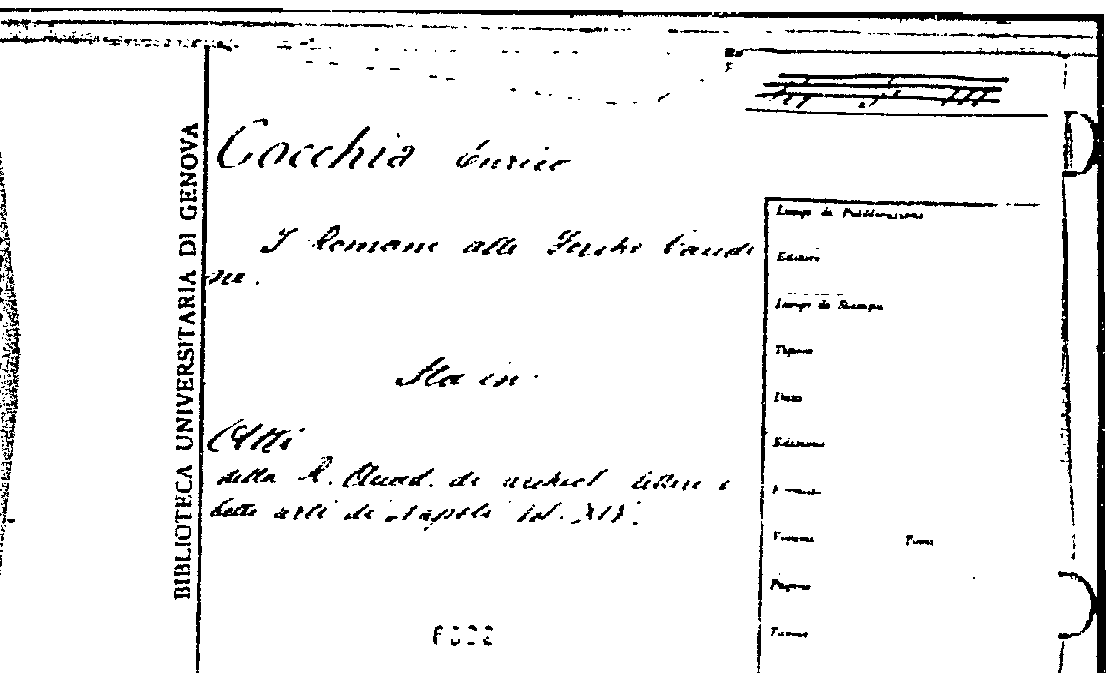 BIBLIOTECA UNIVERSITARIA DI GENOVA
Cocchia Enrico
I Romani alle Forche Caudi
ne.
Sta in
Atti
della R. Accad. di archeol. lettere e
belle arti di Napoli Vol. XIX.
Luogo di Pubblicazione
Editore
Luogo di Stampa
Tipogr.
Data
Edizione
Formato
Volume
Pagine